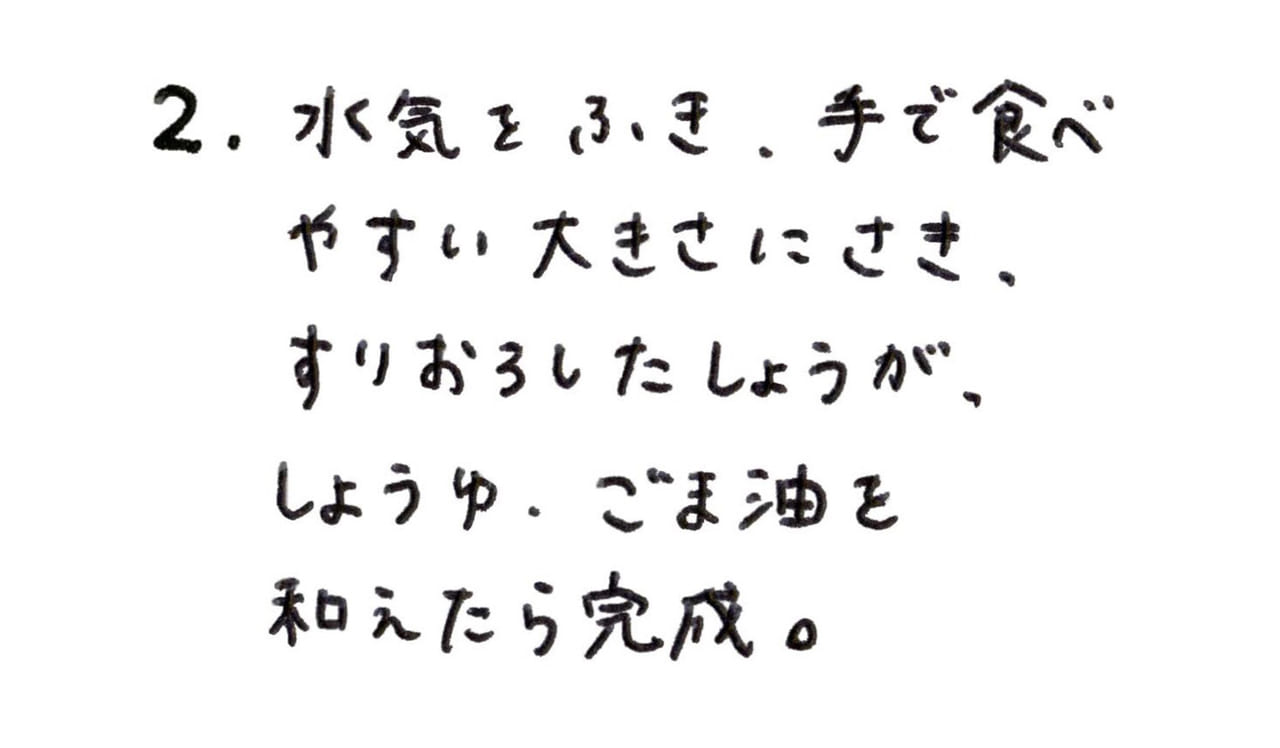 2. 水気をふき、手で食べ
やすい大きさにさき、
すりおろしたしょうが、
しょうゆ、ごま油を
和えたら完成。